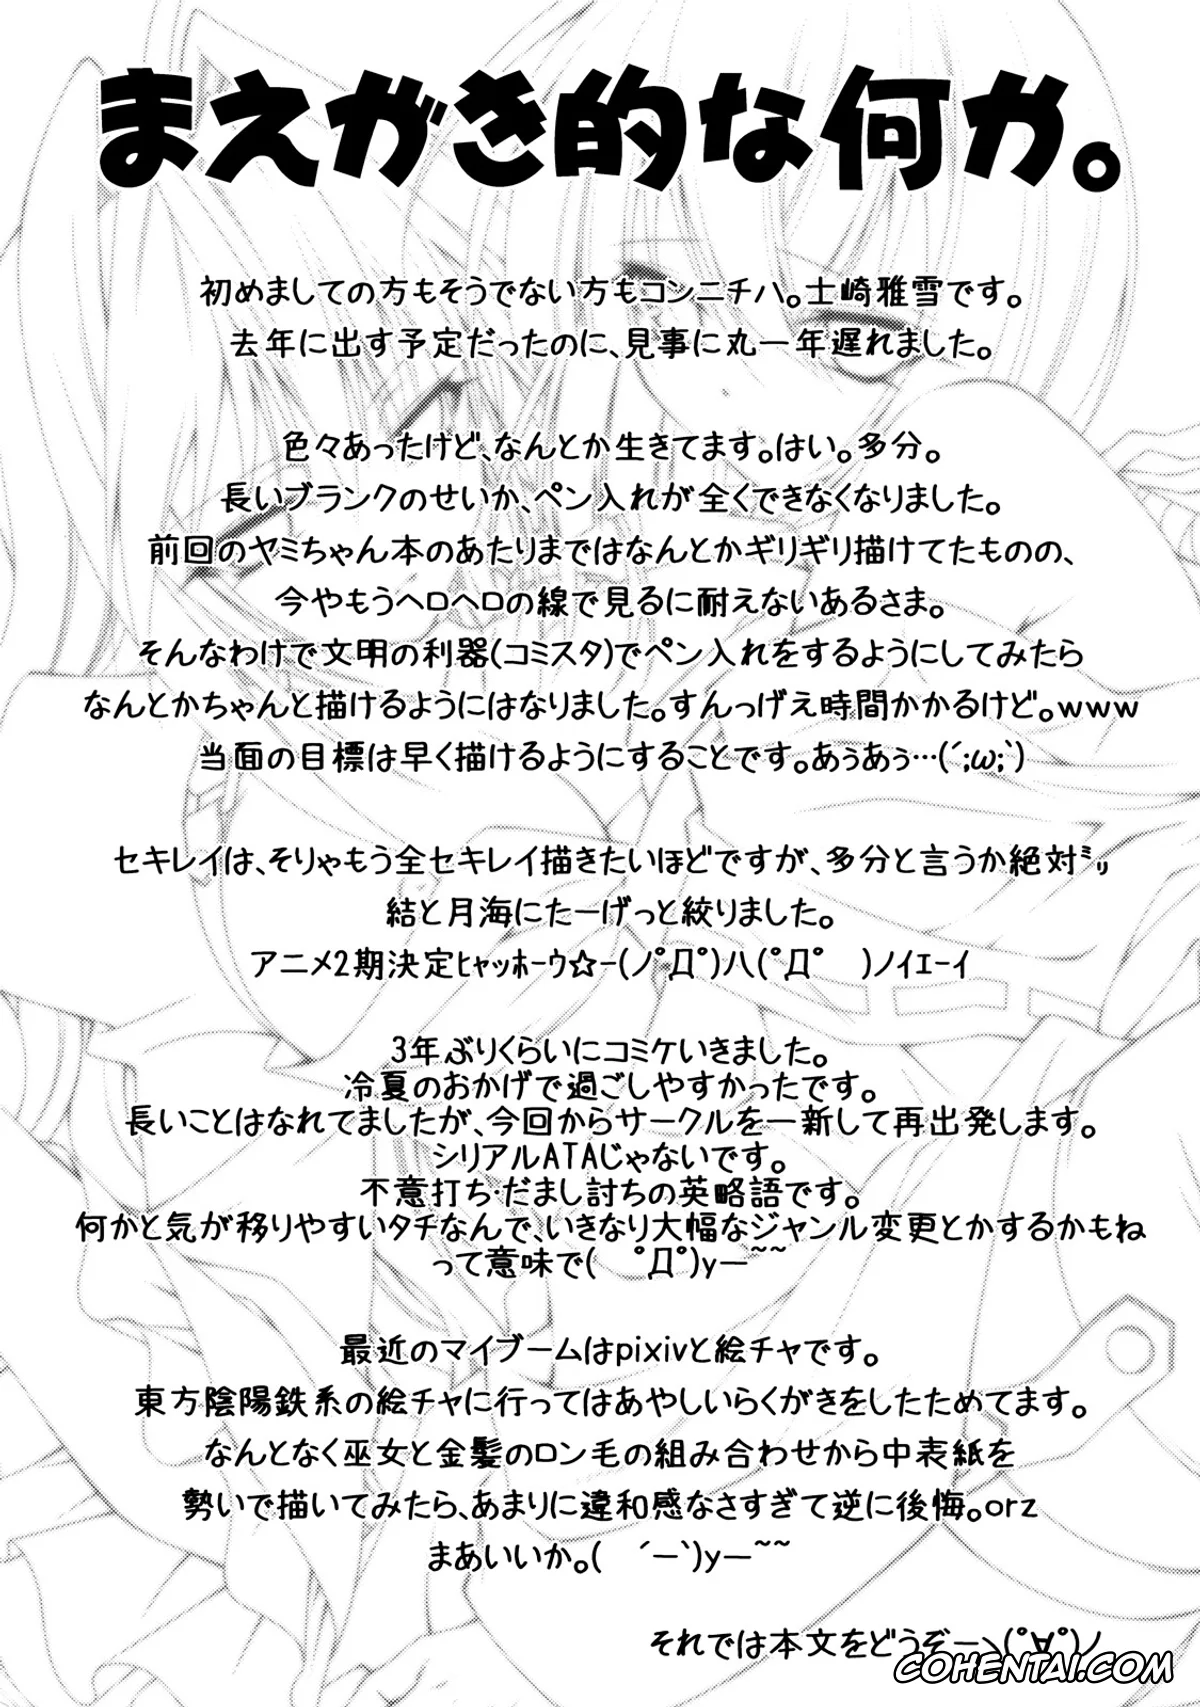 まえがき的な何か。
初めましての方もそうでない方もコンニチハ。士崎雅雪です。
去年に出す予定だったのに、見事に丸一年遅れました。
色々あったけど、なんとか生きてます。はい。多分。
長いブランクのせいか、ペン入れが全くできなくなりました。
前回のヤミちゃん本のあたりまではなんとかギリギリ描けてたものの、
今やもうヘロヘロの線で見るに耐えないあるさま。
そんなわけで文明の利器(コミスタ)でペン入れをするようにしてみたら
なんとかちゃんと描けるようにはなりました。すんっげえ時間かかるけど。www
当面の目標は早く描けるようにすることです。あぅあぅ…(´;ω;`)
セキレイは、そりゃもう全セキレイ描きたいほどですが、多分と言うか絶対ﾐﾘ
結と月海にたーげっと絞りました。
アニメ2期決定ﾋｬｯﾎｰｳ☆ｰ(ノﾟДﾟ)八(ﾟДﾟ　)ノｲｴｰｲ
3年ぶりくらいにコミケいきました。
冷夏のおかげで過ごしやすかったです。
長いことはなれてましたが、今回からサークルを一新して再出発します。
シリアルATAじゃないです。
不意打ち・だまし討ちの英略語です。
何かと気が移りやすいタチなんで、いきなり大幅なジャンル変更とかするかもね
って意味で(　ﾟДﾟ)y―~~
最近のマイブームはpixivと絵チャです。
東方陰陽鉄系の絵チャに行ってはあやしいらくがきをしたためてます。
なんとなく巫女と金髪のロン毛の組み合わせから中表紙を
勢いで描いてみたら、あまりに違和感なさすぎて逆に後悔。orz
まあいいか。(　´ー`)y―~~
それでは本文をどうぞーヽ(ﾟ∀ﾟ)ノ
COHENTAI.COM